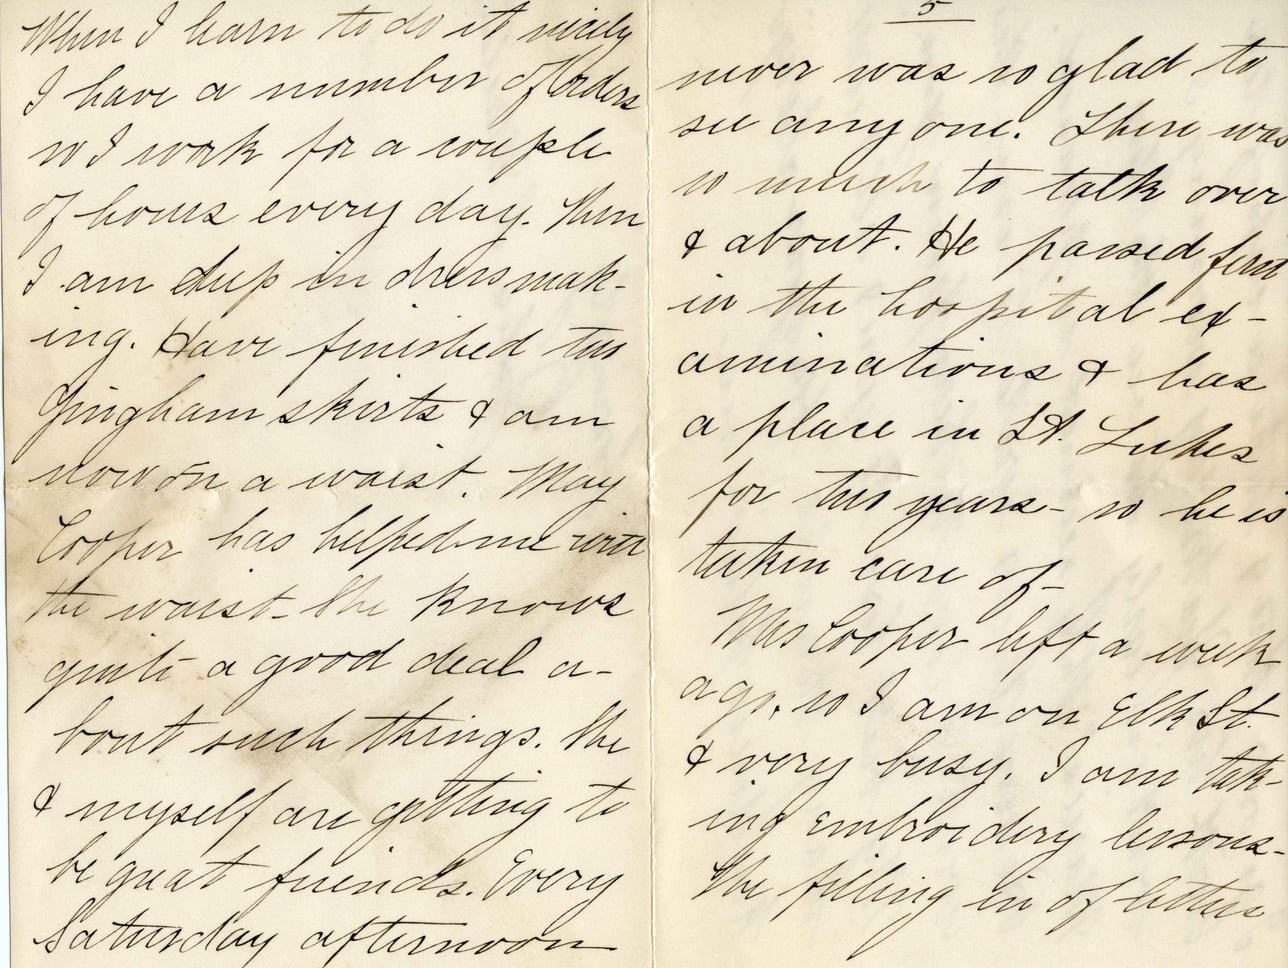 When I learn to do it nicely
I have a number of orders
so I work for a couple
of hours every day. Then
I am deep in dressmak-
ing. Have finished two
gingham skirts & am
now on a waist. May
Cooper has helped me with
the waist - She knows
quite a good deal a-
bout such things. She
& myself are getting to
be great friends. Every
Saturday afternoon
5
never was so glad to
see any one. There was
so much to talk over
& about. He passed first
in the hospital ex-
aminations & has
a place in St. Lukes
for two years - so he is
taken care of -
Mrs Cooper left a week
ago, so I am on Elk St.
& very busy. I am tak-
ing embroidery lessons -
The filling in of letters